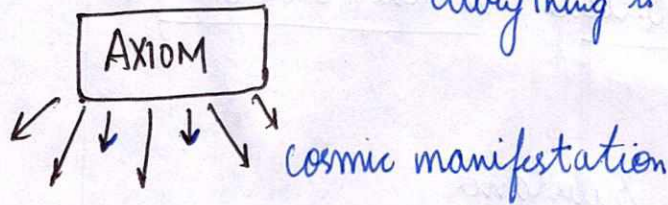 everything is
AXIOM
cosmic manifestation